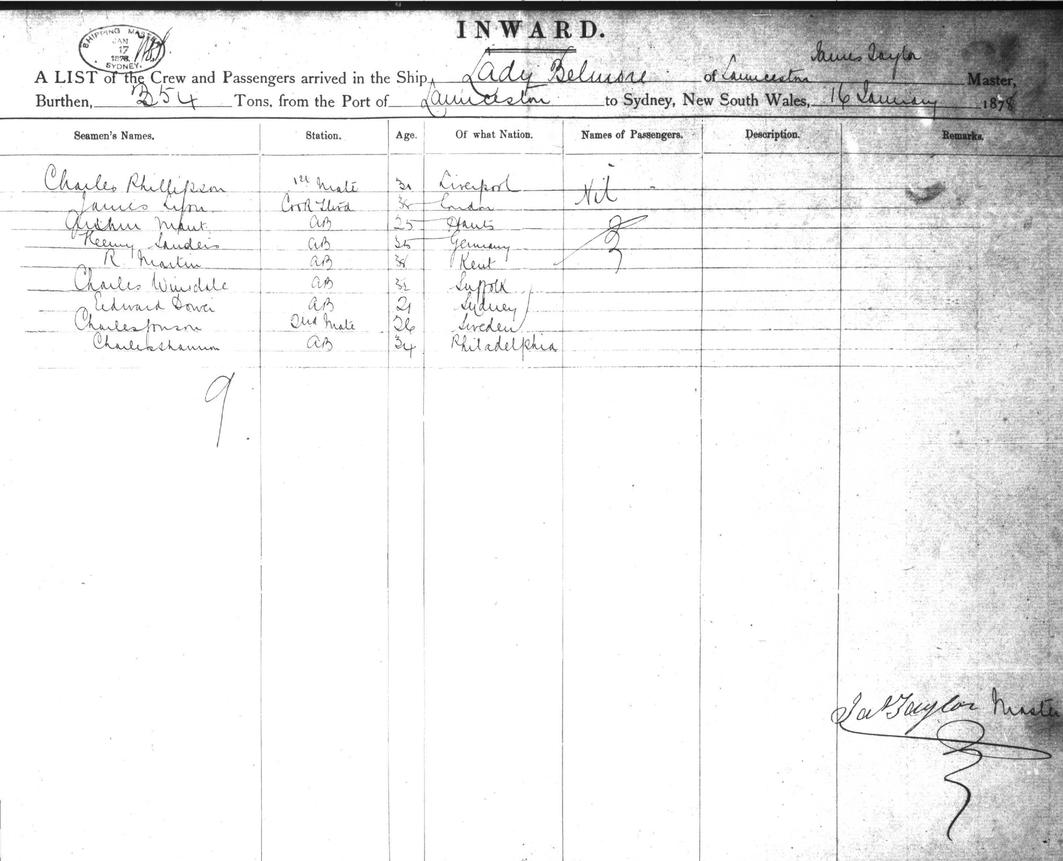 INWARD.
SHIPPING MASTER
JAN
17
1878
SYDNEY.
James Taylor
A LIST of the Crew and Passengers arrived in the Ship, Lady Belmore of Launceston Master,
Burthen, 354 Tons, from the Port of Launceston to Sydney, New South Wales, 16 January 1878
Seamen's Names. Station. Age. Of what Nation. Names of Passengers. Description. Remarks.
Charles Phillipson 1st Mate Liverpool Nil
James Lyon Cook London
Mant AB 25 Hants
Sanders AB Germany
R Martin AB Kent
Charles AB Suffolk
Edward AB 21 Sydney
Charles Jonson 2nd Mate 26 Sweden
Charles Shannon AB 34 Philadelphia
9
Jas Taylor Master